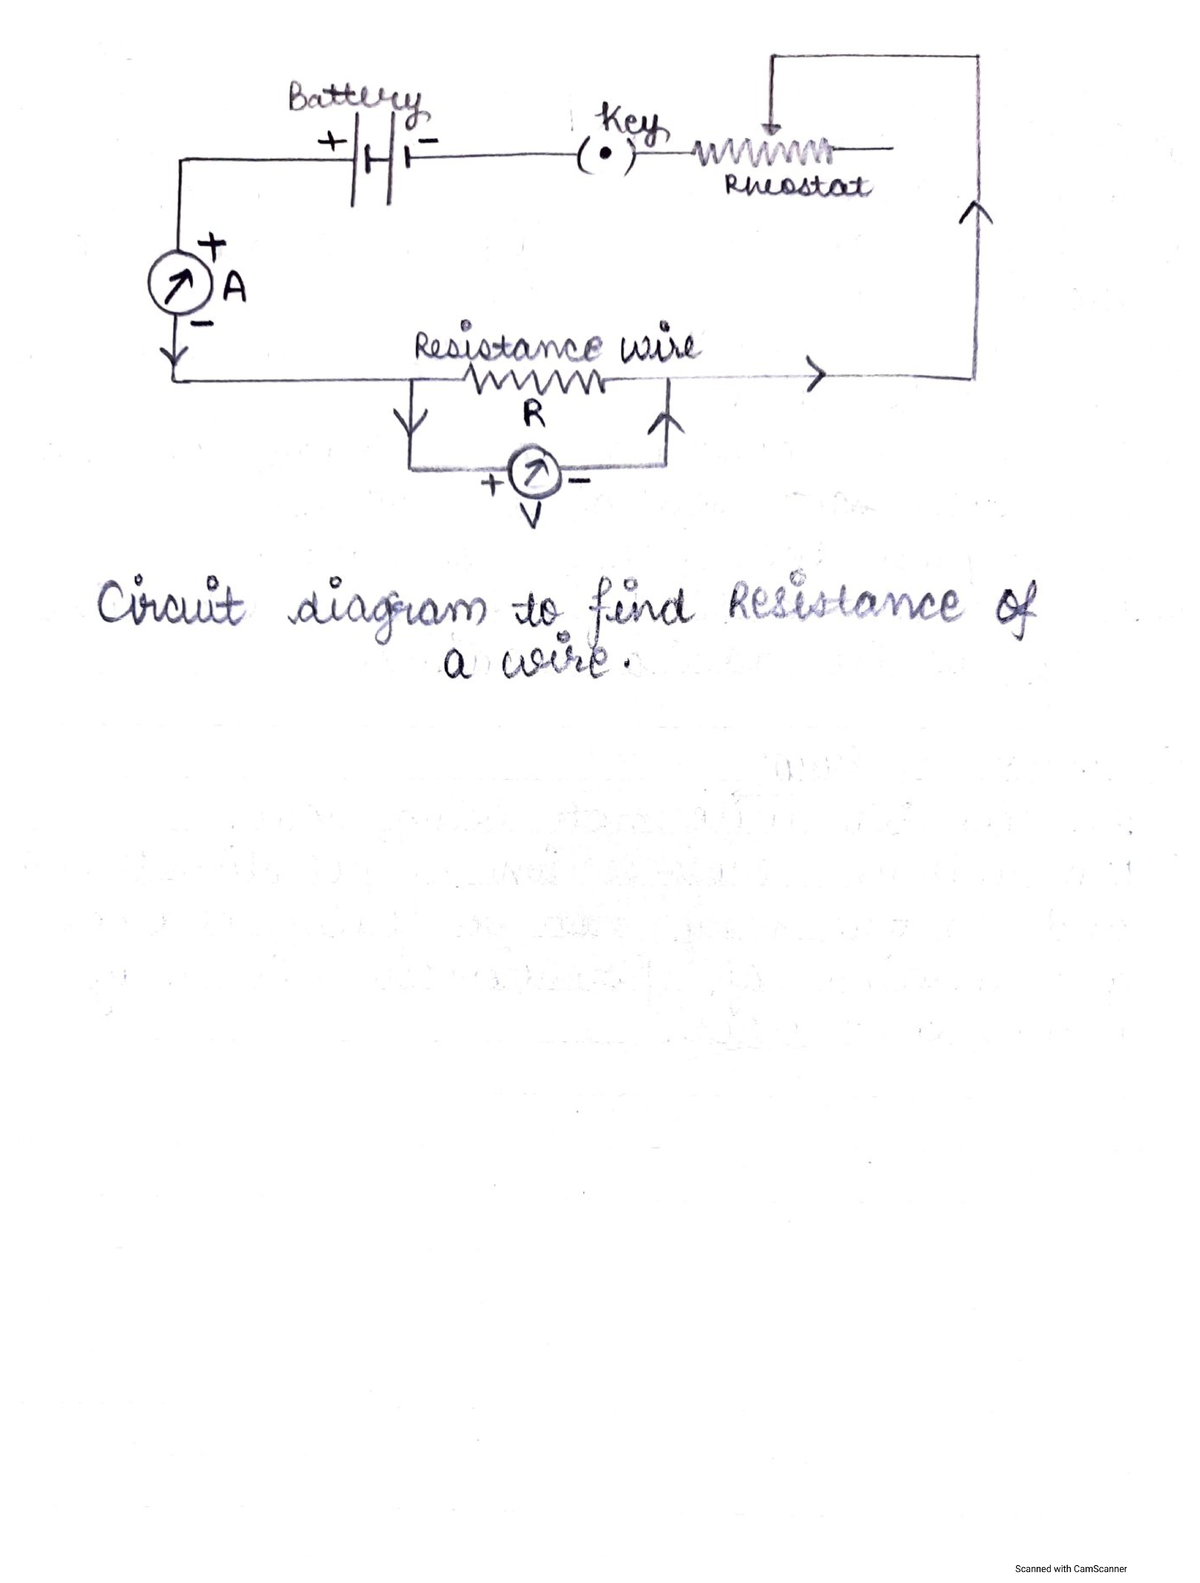 Battery
+ -
Key
(•)
Rheostat
+
A
-
Resistance wire
R
+ -
V
Circuit diagram to find Resistance of
a wire.
Scanned with CamScanner